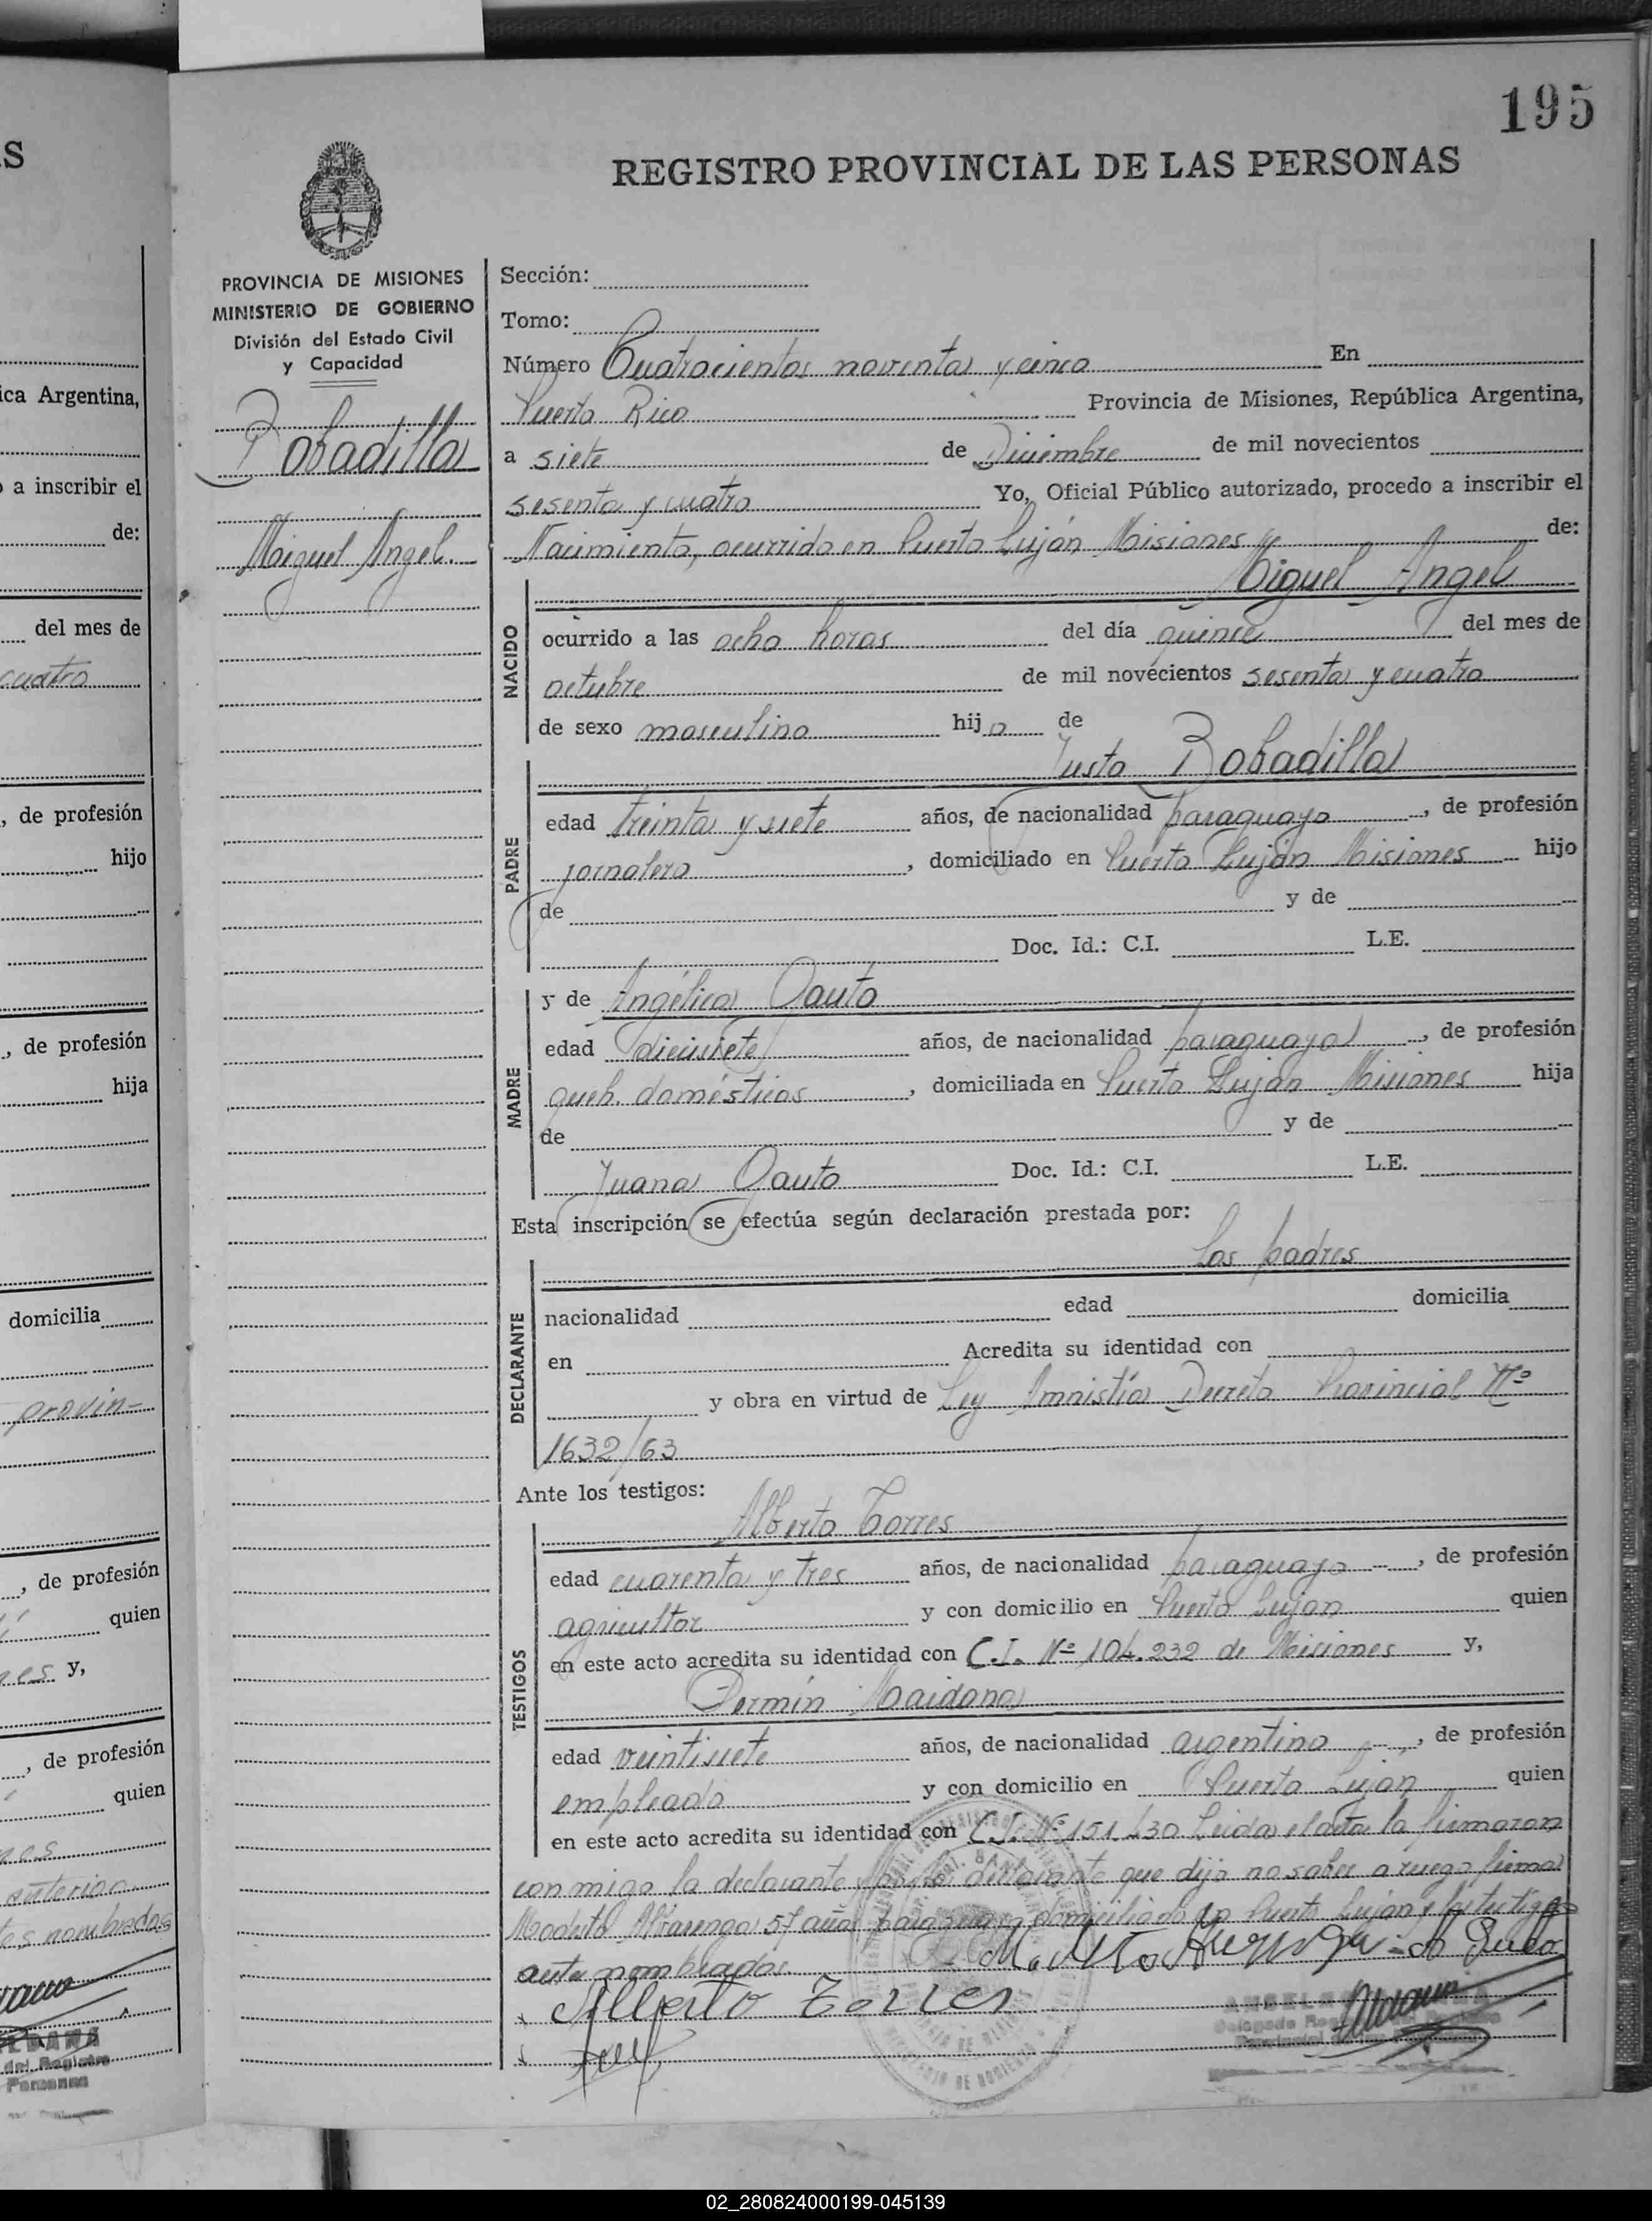 195
REGISTRO PROVINCIAL DE LAS PERSONAS
PROVINCIA DE MISIONES
MINISTERIO DE GOBIERNO
División del Estado Civil
y Capacidad
Bobadilla
Miguel Angel.
Sección:
Tomo:
Número Cuatrocientos noventa y cinco En
Puerto Rico Provincia de Misiones, República Argentina,
a siete de Diciembre de mil novecientos
sesenta y cuatro Yo, Oficial Público autorizado, procedo a inscribir el
Nacimiento, ocurrido en Puerto Luján Misiones de:
Miguel Angel
NACIDO
ocurrido a las ocho horas del día quince del mes de
octubre de mil novecientos sesenta y cuatro
de sexo masculino hijo de
Justo Bobadilla
PADRE
edad treinta y siete años, de nacionalidad paraguaya, de profesión
jornalero, domiciliado en Puerto Luján Misiones hijo
de y de
Doc. Id.: C.I. L.E.
MADRE
y de Angélica Gauto
edad diecisiete años, de nacionalidad paraguaya, de profesión
queh. domésticos, domiciliada en Puerto Luján Misiones hija
de y de
Juana Gauto Doc. Id.: C.I. L.E.
Esta inscripción se efectúa según declaración prestada por:
Los padres
DECLARANTE
nacionalidad edad domicilia
en Acredita su identidad con
y obra en virtud de Ley Amnistía Decreto Provincial Nº
1632/63
Ante los testigos:
Alberto Torres
TESTIGOS
edad cuarenta y tres años, de nacionalidad paraguayo, de profesión
agricultor y con domicilio en Puerto Luján quien
en este acto acredita su identidad con C.I. Nº 104.232 de Misiones y,
Fermín Maidana
edad veintisiete años, de nacionalidad argentino, de profesión
empleado y con domicilio en Puerto Luján quien
en este acto acredita su identidad con C.I. Nº 151.430 Leida el acta la firmaron
conmigo la declarante declarante que dijo no saber a ruego firma
Modesto 57 años paraguayo domiciliado en Puerto Luján y los testigos
ante nombrados.
Alberto Torres
S
ica Argentina,
a inscribir el
de:
del mes de
cuatro
, de profesión
hijo
, de profesión
hija
domicilia
provin-
, de profesión
quien
y,
, de profesión
quien
anterior
nombrados
del Registro
Personas
02_280824000199-045139